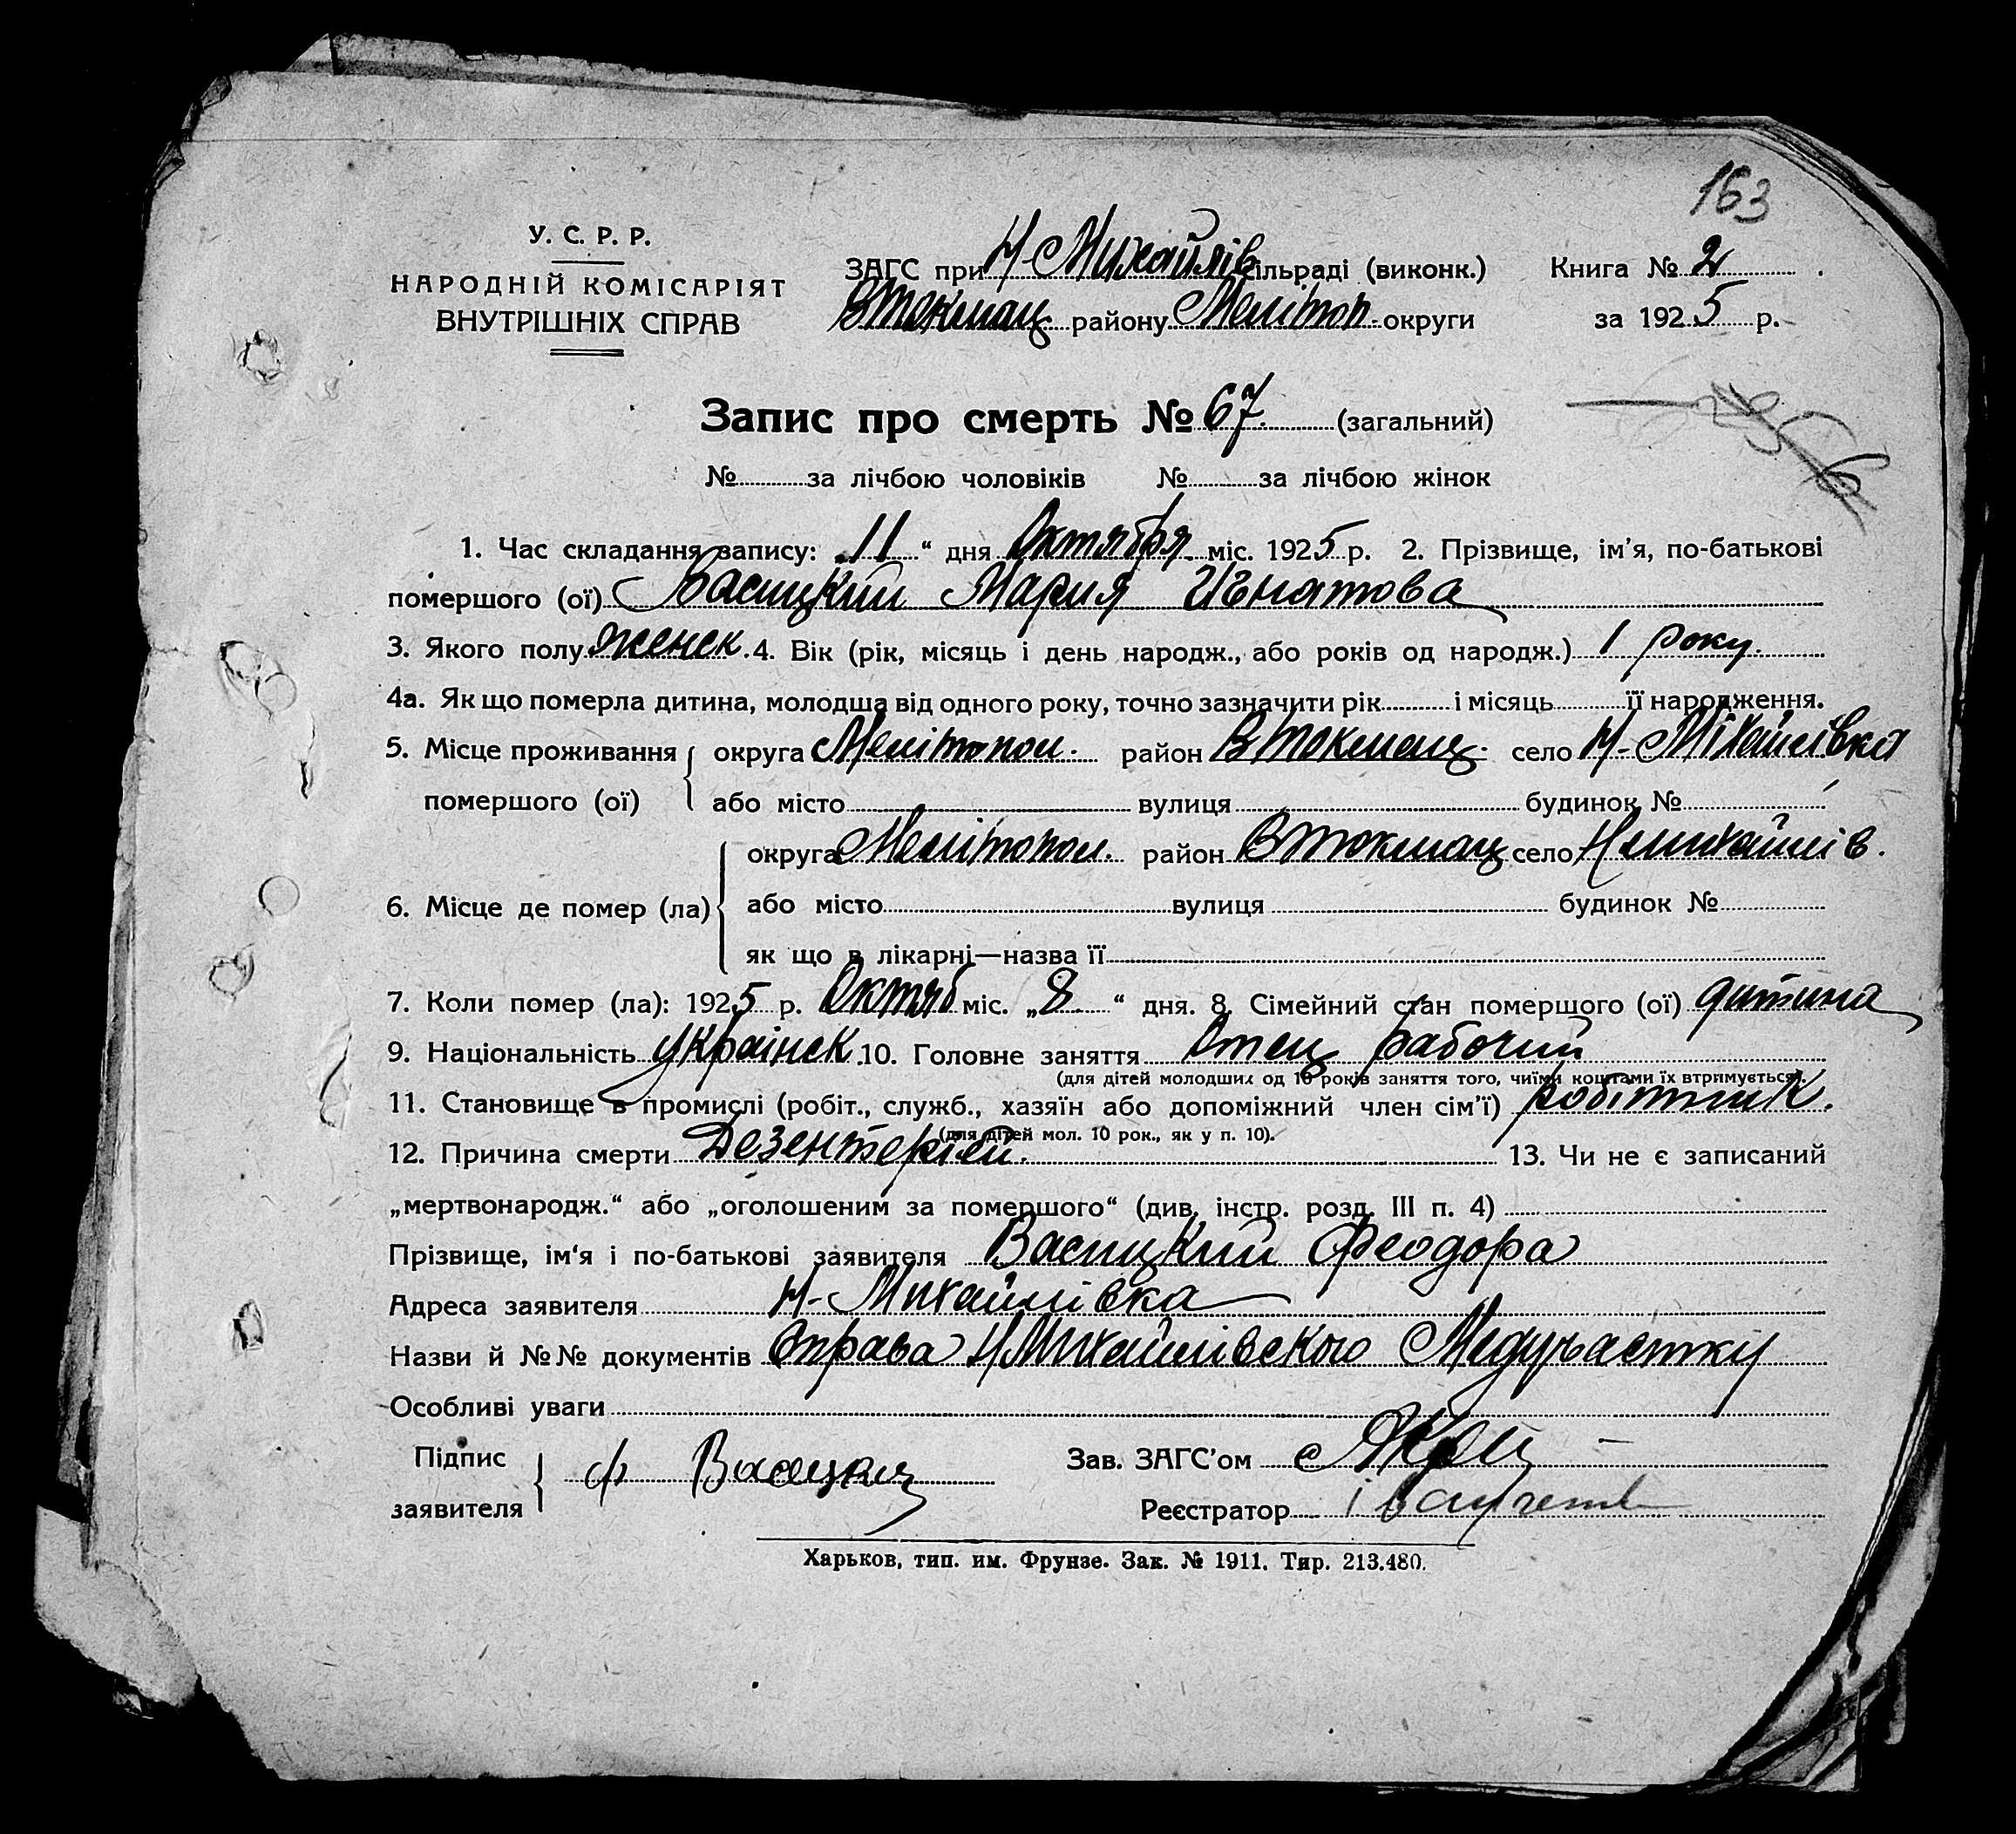 163
У. С. Р. Р.
НАРОДНІЙ КОМІСАРІЯТ
ВНУТРІШНІХ СПРАВ
ЗАГС при Н-Михайлів сільраді (виконк.) Книга № 2
ВТокмац. району Мелітоп. округи за 1925 р.
Запис про смерть № 67. (загальний)
№ за лічбою чоловіків № за лічбою жінок
1. Час складання запису: „11“ дня Октября міс. 1925 р. 2. Прізвище, ім’я, по-батькові
помершого (ої) Васицкий Мария Игнатова
3. Якого полу женск. 4. Вік (рік, місяць і день народж., або років од народж.) 1 року.
4а. Як що померла дитина, молодша від одного року, точно зазначити рік і місяць її народження.
5. Місце проживання округа Мелітопол. район ВТокмац. село Н-Міхайлівка
помершого (ої) або місто вулиця будинок №
округа Мелітопол. район ВТокмац село Нмихайлів.
6. Місце де помер (ла) або місто вулиця будинок №
як що в лікарні—назва її
7. Коли помер (ла): 1925 р. Октяб міс. „8“ дня. 8. Сімейний стан помершого (ої) дитина
9. Національність Українск. 10. Головне заняття Отец рабочий
(для дітей молодших од 10 років заняття того, чиїми коштами їх втримується).
11. Становище в промислі (робіт., служб., хазяїн або допоміжний член сім’ї) робітник.
(для дітей мол. 10 рок., як у п. 10).
12. Причина смерти Дезентерієй. 13. Чи не є записаний
„мертвонародж.“ або „оголошеним за помершого“ (див. інстр. розд. III п. 4)
Прізвище, ім’я і по-батькові заявителя Васицкий Феодора
Адреса заявителя Н-Михайлівка
Назви й №№ документів Справа НМихайлівского Медучастку
Особливі уваги
Підпис Ф Васицкий Зав. ЗАГС’ом
заявителя Реєстратор
Харьков, тип. им. Фрунзе. Зак. № 1911. Тир. 213.480.